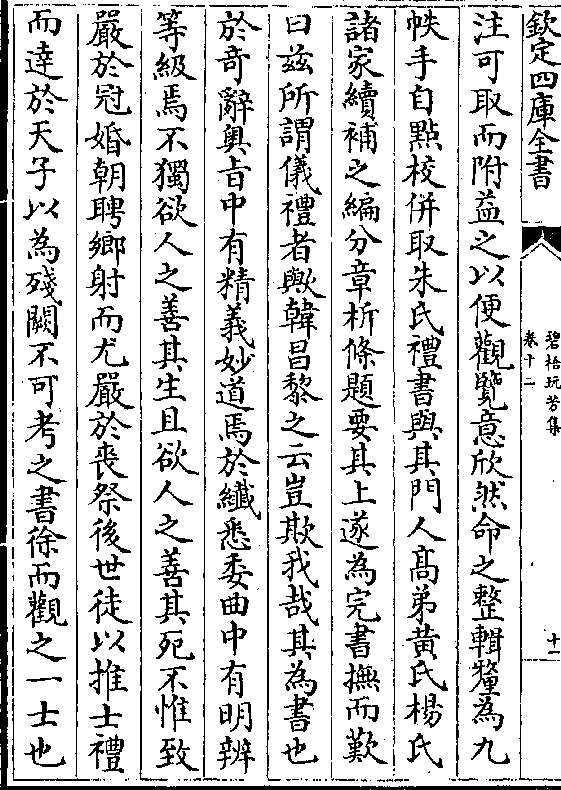 欽定四庫全書
碧梧玩芳集
卷十二
十一
注可取而附益之以便觀覽意欣然命之整輯釐為九
帙手自點校併取朱氏禮書與其門人髙弟黄氏楊氏
諸家續補之編分章析條題要其上遂為完書撫而歎
曰兹所謂儀禮者歟韓昌黎之云豈欺我哉其為書也
於竒辭奥㫖中有精義妙道焉於纖悉委曲中有明辨
等級焉不獨欲人之善其生且欲人之善其死不惟致
嚴於冠婚朝聘鄉射而尤嚴於喪祭後世徒以推士禮
而逹於天子以為殘闕不可考之書徐而觀之一士也